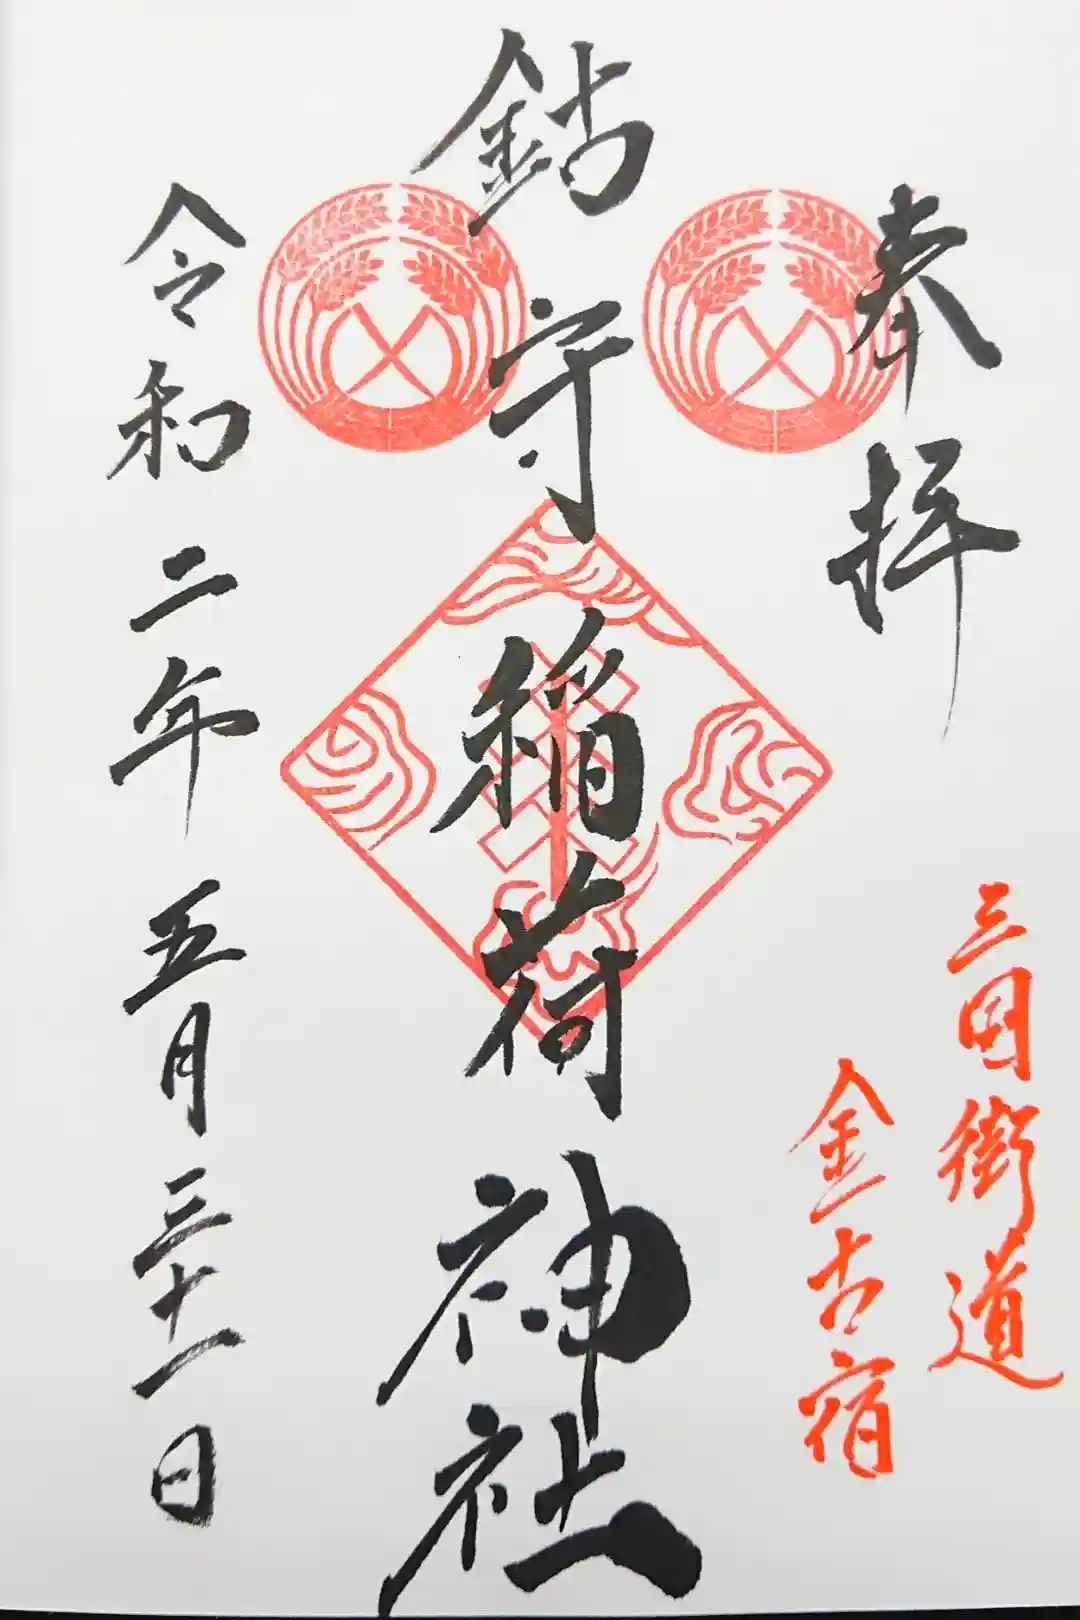 奉拝
三国街道
金古宿
鈷守稲荷神社
令和二年五月三十一日